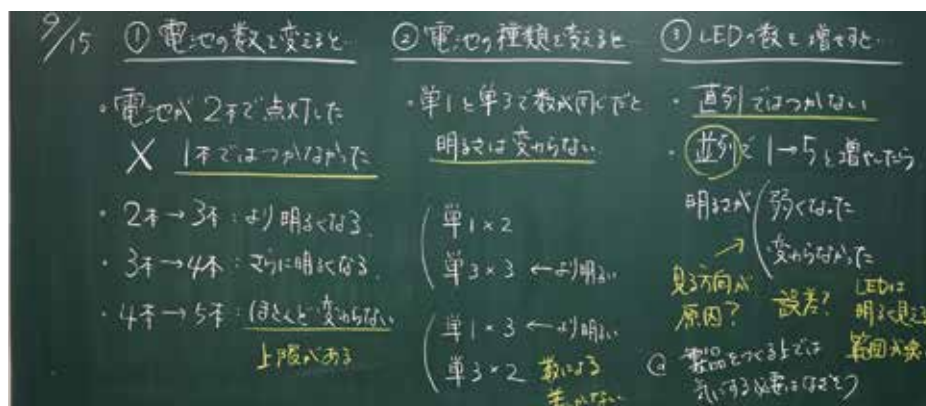 9/15
① 電池の数を変えると…
・電池が2本で点灯した
× 1本ではつかなかった
・2本→3本:より明るくなる.
・3本→4本:さらに明るくなる.
・4本→5本:ほとんど変わらない
上限がある
② 電池の種類を変えると…
・単1と単3で数が同じだと
明るさは変わらない
単1×2
単3×3 ←より明るい
単1×3 ←より明るい
単3×2 数による
差しかない
③ LEDの数を増やすと…
・直列ではつかない
・並列で1→5と増やしたら
明るさが
弱くなった
変わらなかった
見る方向が
原因?
誤差?
LEDは
明るく見える
範囲が狭い
@ 製品をつくる上では
気にする必要はなさそう